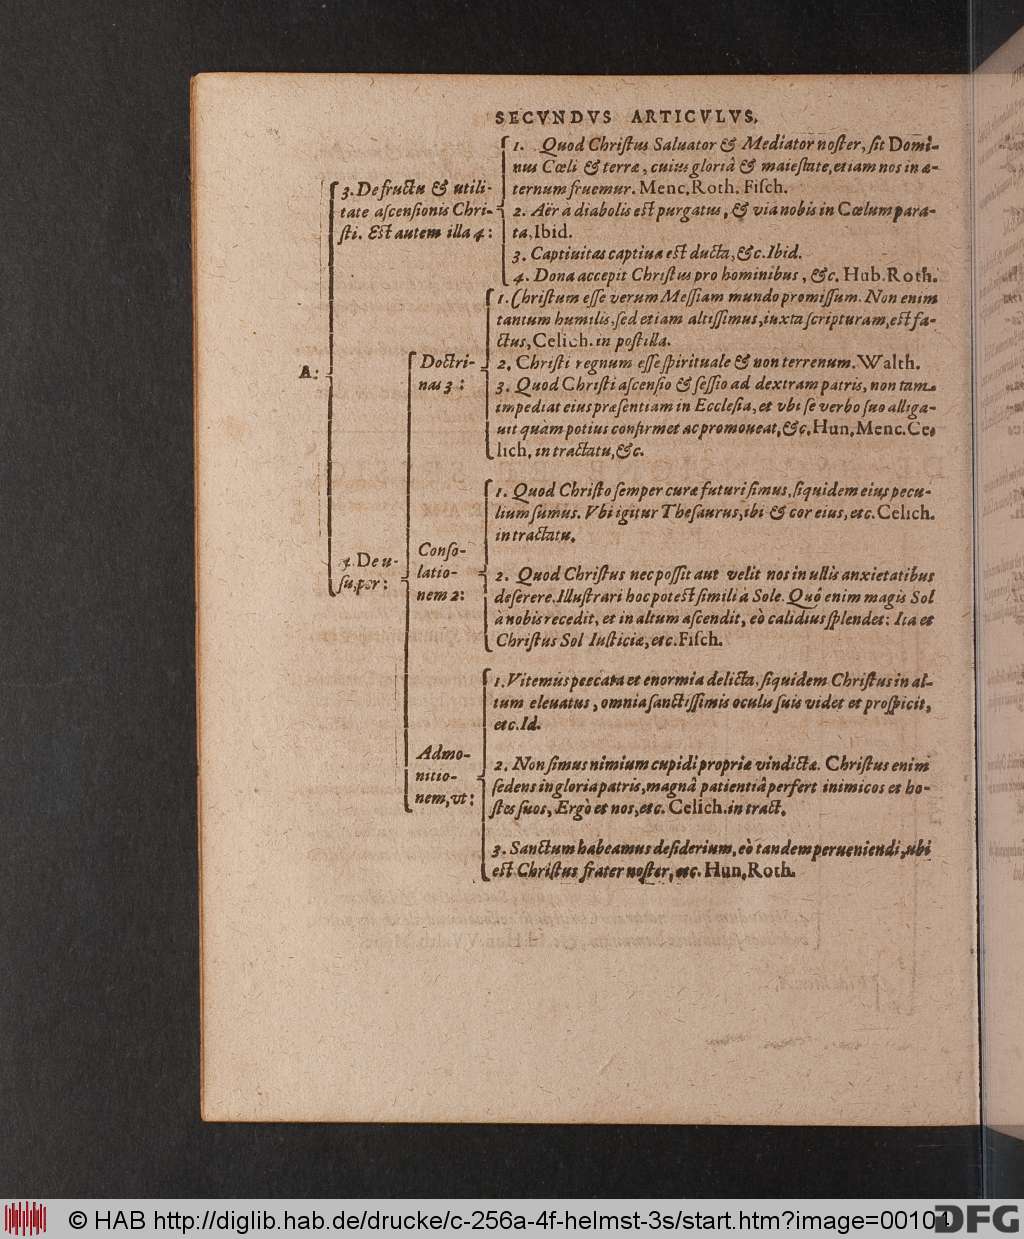 SECVNDVS ARTICVLVS.
A:
3. De fructu & utili-
tate ascensionis Chri-
sti. Est autem illa 4:
1. Quod Christus Saluator & Mediator noster, sit Domi-
nus Cœli & terræ, cuius gloriâ & maiestate, etiam nos in æ-
ternum fruemur. Menc, Roth. Fisch.
2. Aër à diabolis est purgatus, & via nobis in Cœlum para-
ta, Ibid.
3. Captiuitas captiua est ducta, &c. Ibid.
4. Dona accepit Christus pro hominibus, &c. Hub. Roth.
4. De u-
su, per:
Doctri-
nas 3:
1. Christum esse verum Messiam mundo promissum. Non enim
tantum humilis, sed etiam altissimus, iuxta scripturam, est fa-
ctus, Celich. in postilla.
2. Christi regnum esse spirituale & non terrenum. Walth.
3. Quod Christi ascensio & sessio ad dextram patris, non tam
impediat eius præsentiam in Ecclesia, et vbi se verbo suo alliga-
uit quam potius confirmet ac promoueat, &c. Hun, Menc. Ce-
lich, in tractatu, &c.
Conso-
latio-
nem 2:
1. Quod Christo semper curæ futuri simus, siquidem eius pecu-
lium sumus. Vbi igitur Thesaurus, ibi & cor eius, etc. Celich.
in tractatu.
2. Quod Christus nec possit aut velit nos in ullis anxietatibus
deserere. Illustrari hoc potest simili à Sole. Quó enim magis Sol
à nobis recedit, et in altum ascendit, eò calidius splendet: Ita et
Christus Sol Iusticiæ, etc. Fisch.
Admo-
nitio-
nem, vt:
1. Vitemus peccata et enormia delicta, siquidem Christus in al-
tum eleuatus, omnia sanctissimis oculis suis videt et prospicit,
etc. Id.
2. Non simus nimium cupidi propriæ vindictæ. Christus enim
sedens in gloria patris, magnâ patientiâ perfert inimicos et ho-
stes suos, Ergò et nos, etc. Celich. in tract.
3. Sanctum habeamus desiderium, eò tandem perueniendi, ubi
est Christus frater noster, etc. Hun, Roth.
© HAB http://diglib.hab.de/drucke/c-256a-4f-helmst-3s/start.htm?image=00104
DFG